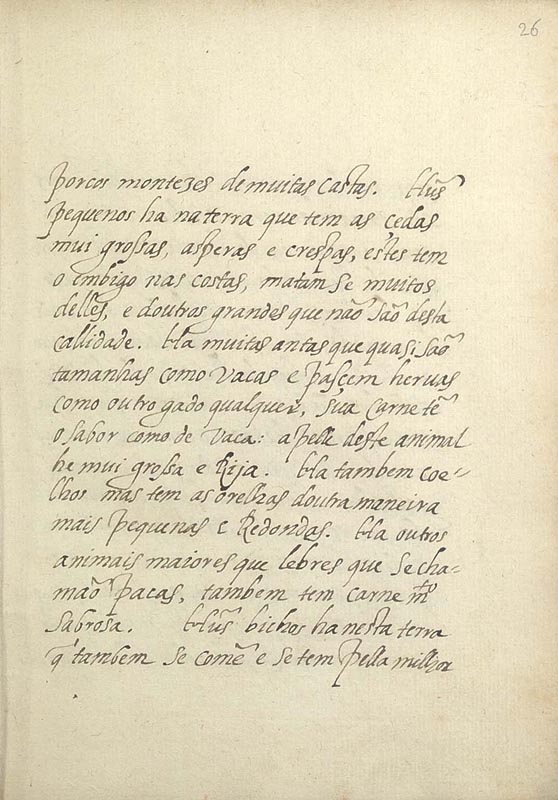 26
porcos montezes de muitas castas. Hũs
pequenos ha na terra que tem as çedas
mui grossas, asperas e crespas, estes tem
o embigo nas costas, matam se muitos
delles, e doutros grandes que não são desta
callidade. Ha muitas antas que quasi são
tamanhas como vacas e pasçem hervas
como outro gado qualquer, sua carne tẽ
o sabor como de vaca: a pelle deste animal
he mui grossa e Rija. Ha tambem coe-
lhos mas tem as orelhas doutra maneira
mais pequenas e Redondas. Ha outros
animais maiores que lebres que se cha-
mão pacas, tambem tem carne mto
sabrosa. Hũs bichos ha nesta terra
q̃ tambem se comẽ e se tem pella milhor